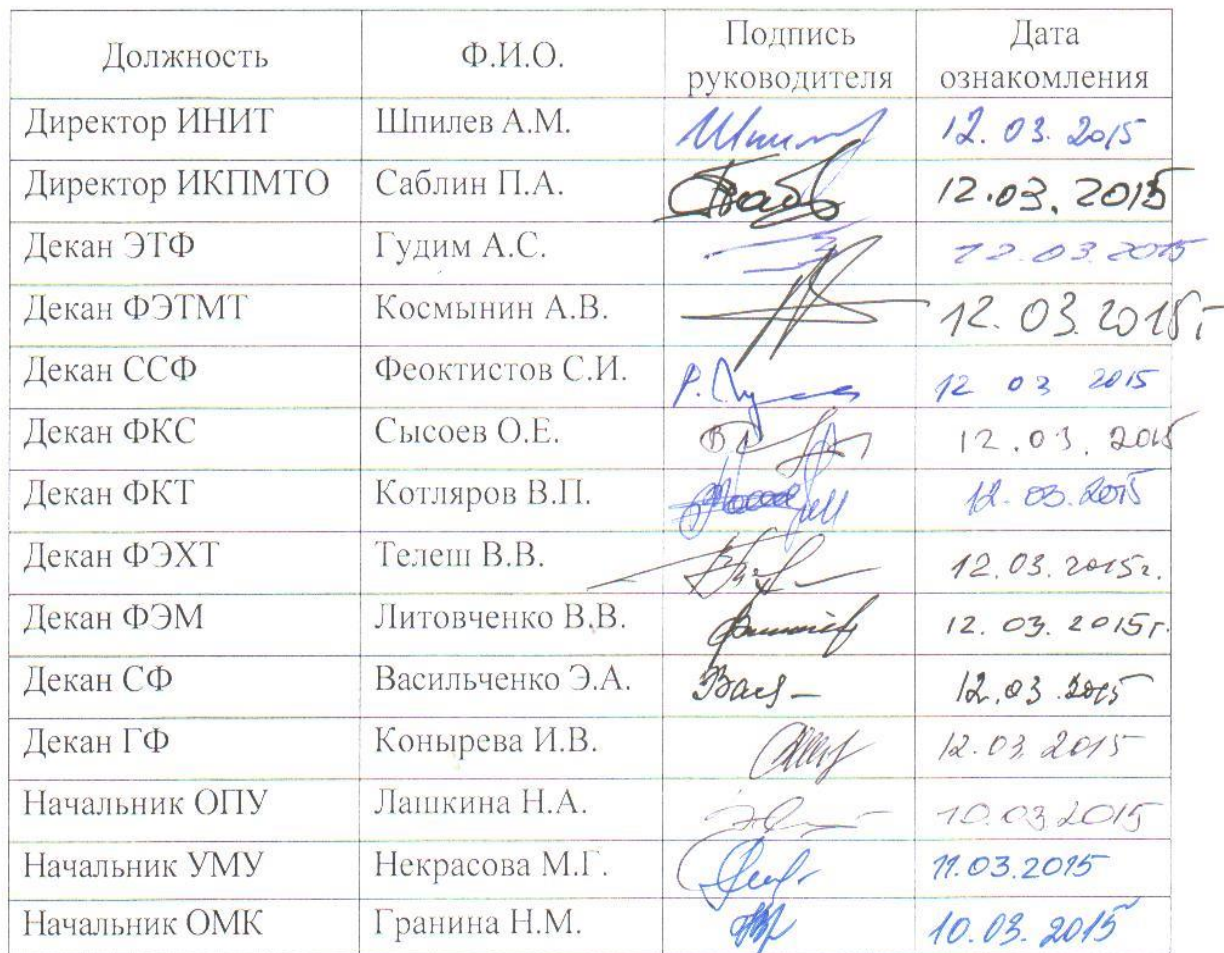 Должность Ф.И.О. Подпись руководителя Дата ознакомления
Директор ИНИТ Шпилев А.М. 12.03.2015
Директор ИКПМТО Саблин П.А. 12.03.2015
Декан ЭТФ Гудим А.С. 12.03.2015
Декан ФЭТМТ Космынин А.В. 12.03.2015г
Декан ССФ Феоктистов С.И. 12 03 2015
Декан ФКС Сысоев О.Е. 12.03.2015
Декан ФКТ Котляров В.П. 12.03.2015
Декан ФЭХТ Телеш В.В. 12.03.2015г.
Декан ФЭМ Литовченко В.В. 12.03.2015г.
Декан СФ Васильченко Э.А. 12.03.2015
Декан ГФ Конырева И.В. 12.03.2015
Начальник ОПУ Лашкина Н.А. 10.03.2015
Начальник УМУ Некрасова М.Г. 11.03.2015
Начальник ОМК Гранина Н.М. 10.03.2015